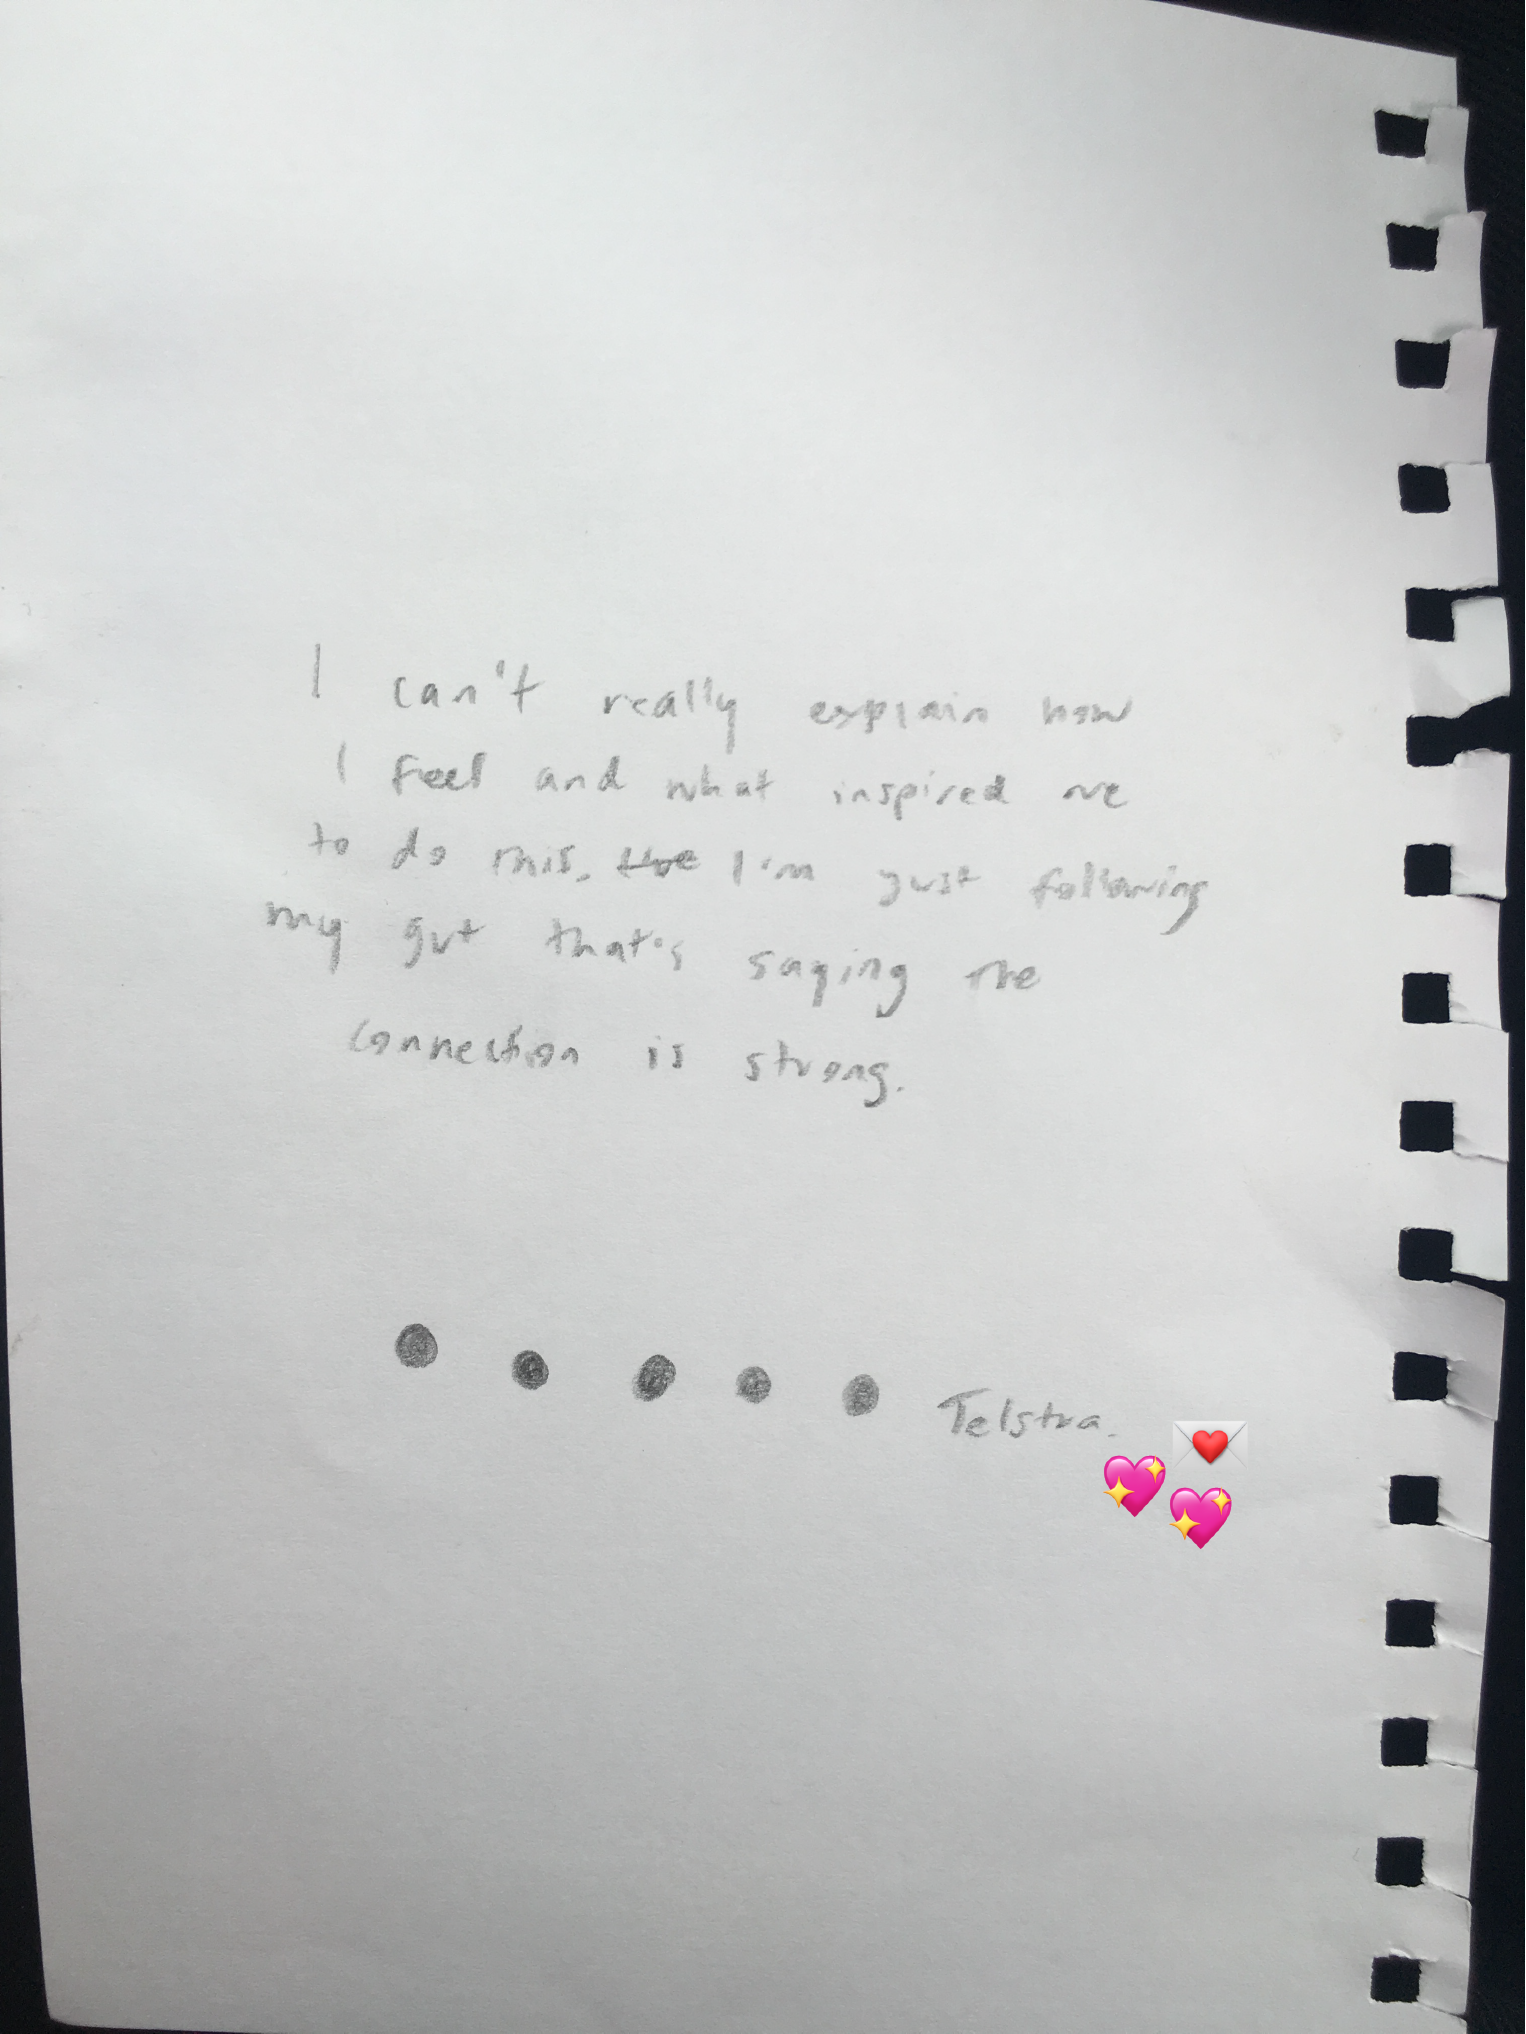 I can't really explain how
I feel and what inspired me
to do this. I'm just following
my gut that's saying the
connection is strong.
● ● ● ● ● Telstra.